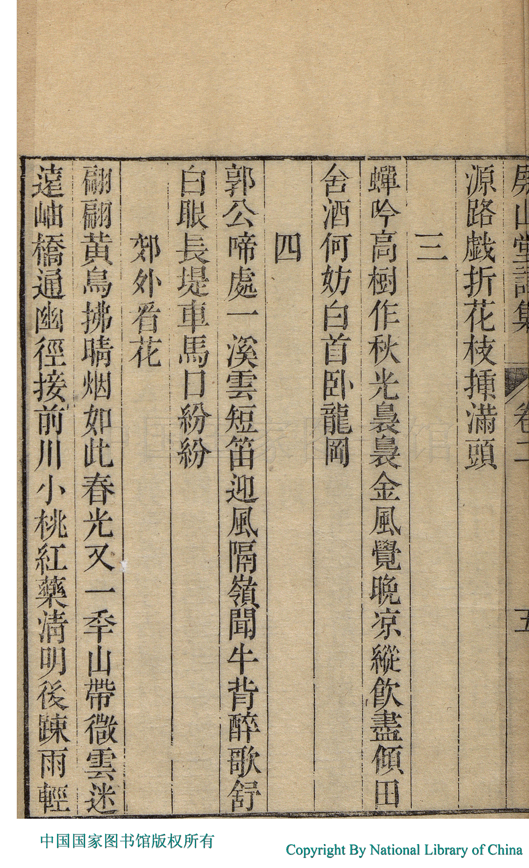 源路戯折花枝揷滿頭
三
蟬吟高樹作秋光裊裊金風覺晚凉縱飲盡傾田
舍酒何妨白首臥龍岡
四
郭公啼處一溪雲短笛迎風隔嶺聞牛背醉歌舒
白眼長堤車馬日紛紛
郊外看花
翩翩黃鳥拂晴烟如此春光又一秊山帶微雲迷
遠岫橋通幽徑接前川小桃紅藥淸明後踈雨輕
中国国家图书馆版权所有
Copyright By National Library of China